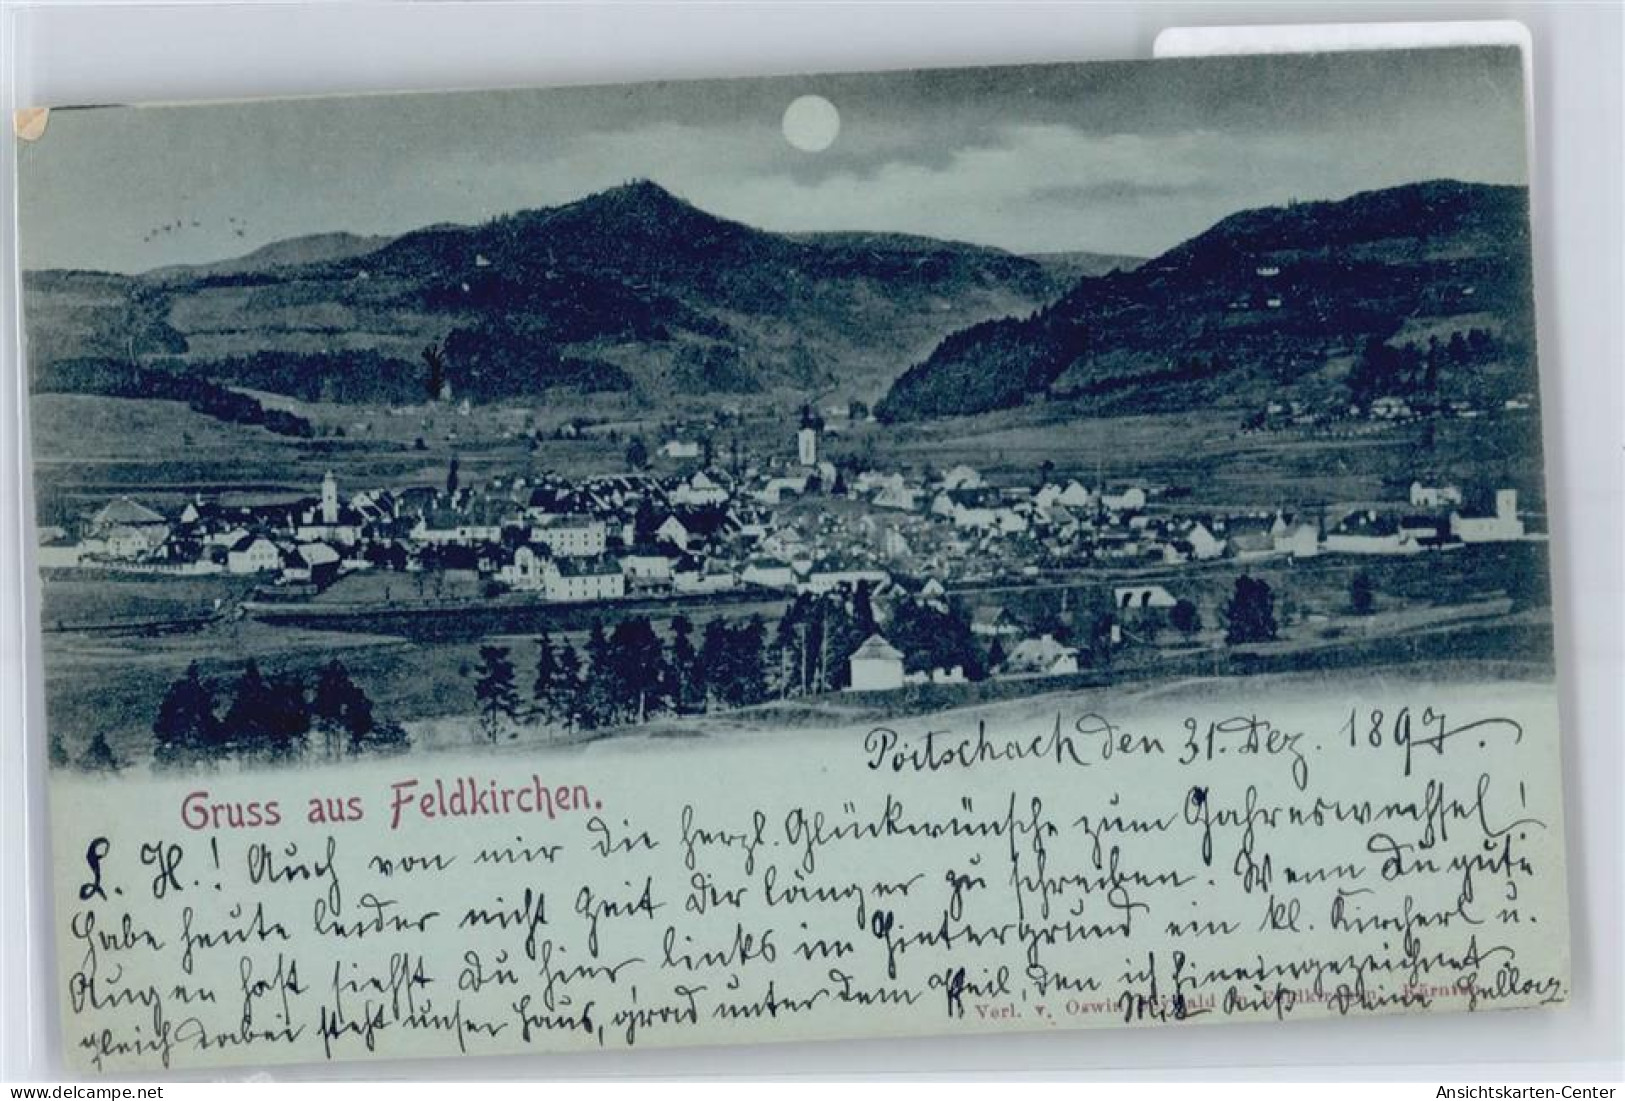 Poitschach den 31. Dez. 1897.
Gruss aus Feldkirchen.
L. H.! Auch von mir die herzl. Glückwünsche zum Jahreswechsel!
Habe heute leider nicht Zeit Dir länger zu schreiben. Wenn Du gute
Augen hast siehst Du hier, links im Hintergrund ein kl. Kircherl u.
gleich dabei steht unser Haus, grad unter dem Pfeil, den ich hineingezeichnet.
Verl. v. Oswin Feldkirchen, Kärnten
Mit Kuß Deine
Ansichtskarten-Center